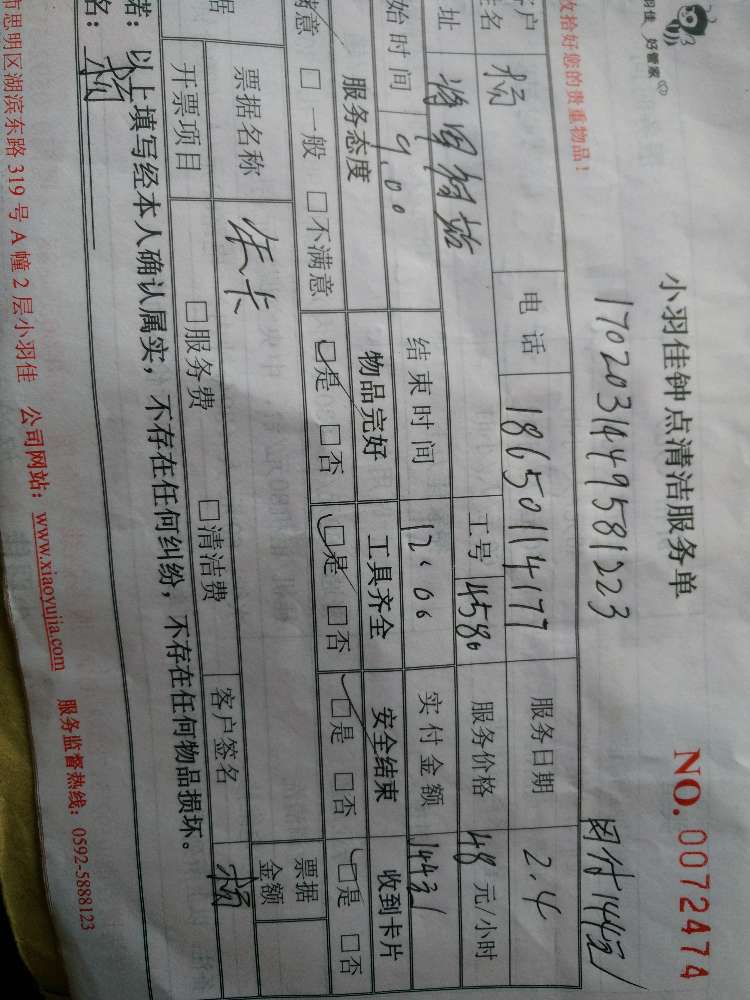 好管家
小羽佳钟点清洁服务单
NO.0072474
1702031449581223 因付144元
收拾好您的贵重物品！
客户姓名 杨 电话 18650114177 服务日期 2.4
址 工号 4580 服务价格 48 元/小时
始时间 9.00 结束时间 12.00 实付金额 144元
服务态度 物品完好 工具齐全 安全结束 收到卡片
满意 □ 一般 □ 不满意 □是 □否 □是 □否 □是 □否 □是 □否
据 票据名称 票据金额
开票项目 □服务费 □清洁费 客户签名 杨
诺：以上填写经本人确认属实，不存在任何纠纷，不存在任何物品损坏。
名：杨
市思明区湖滨东路 319 号 A 幢 2 层小羽佳 公司网站：www.xiaoyujia.com 服务监督热线：0592-5888123